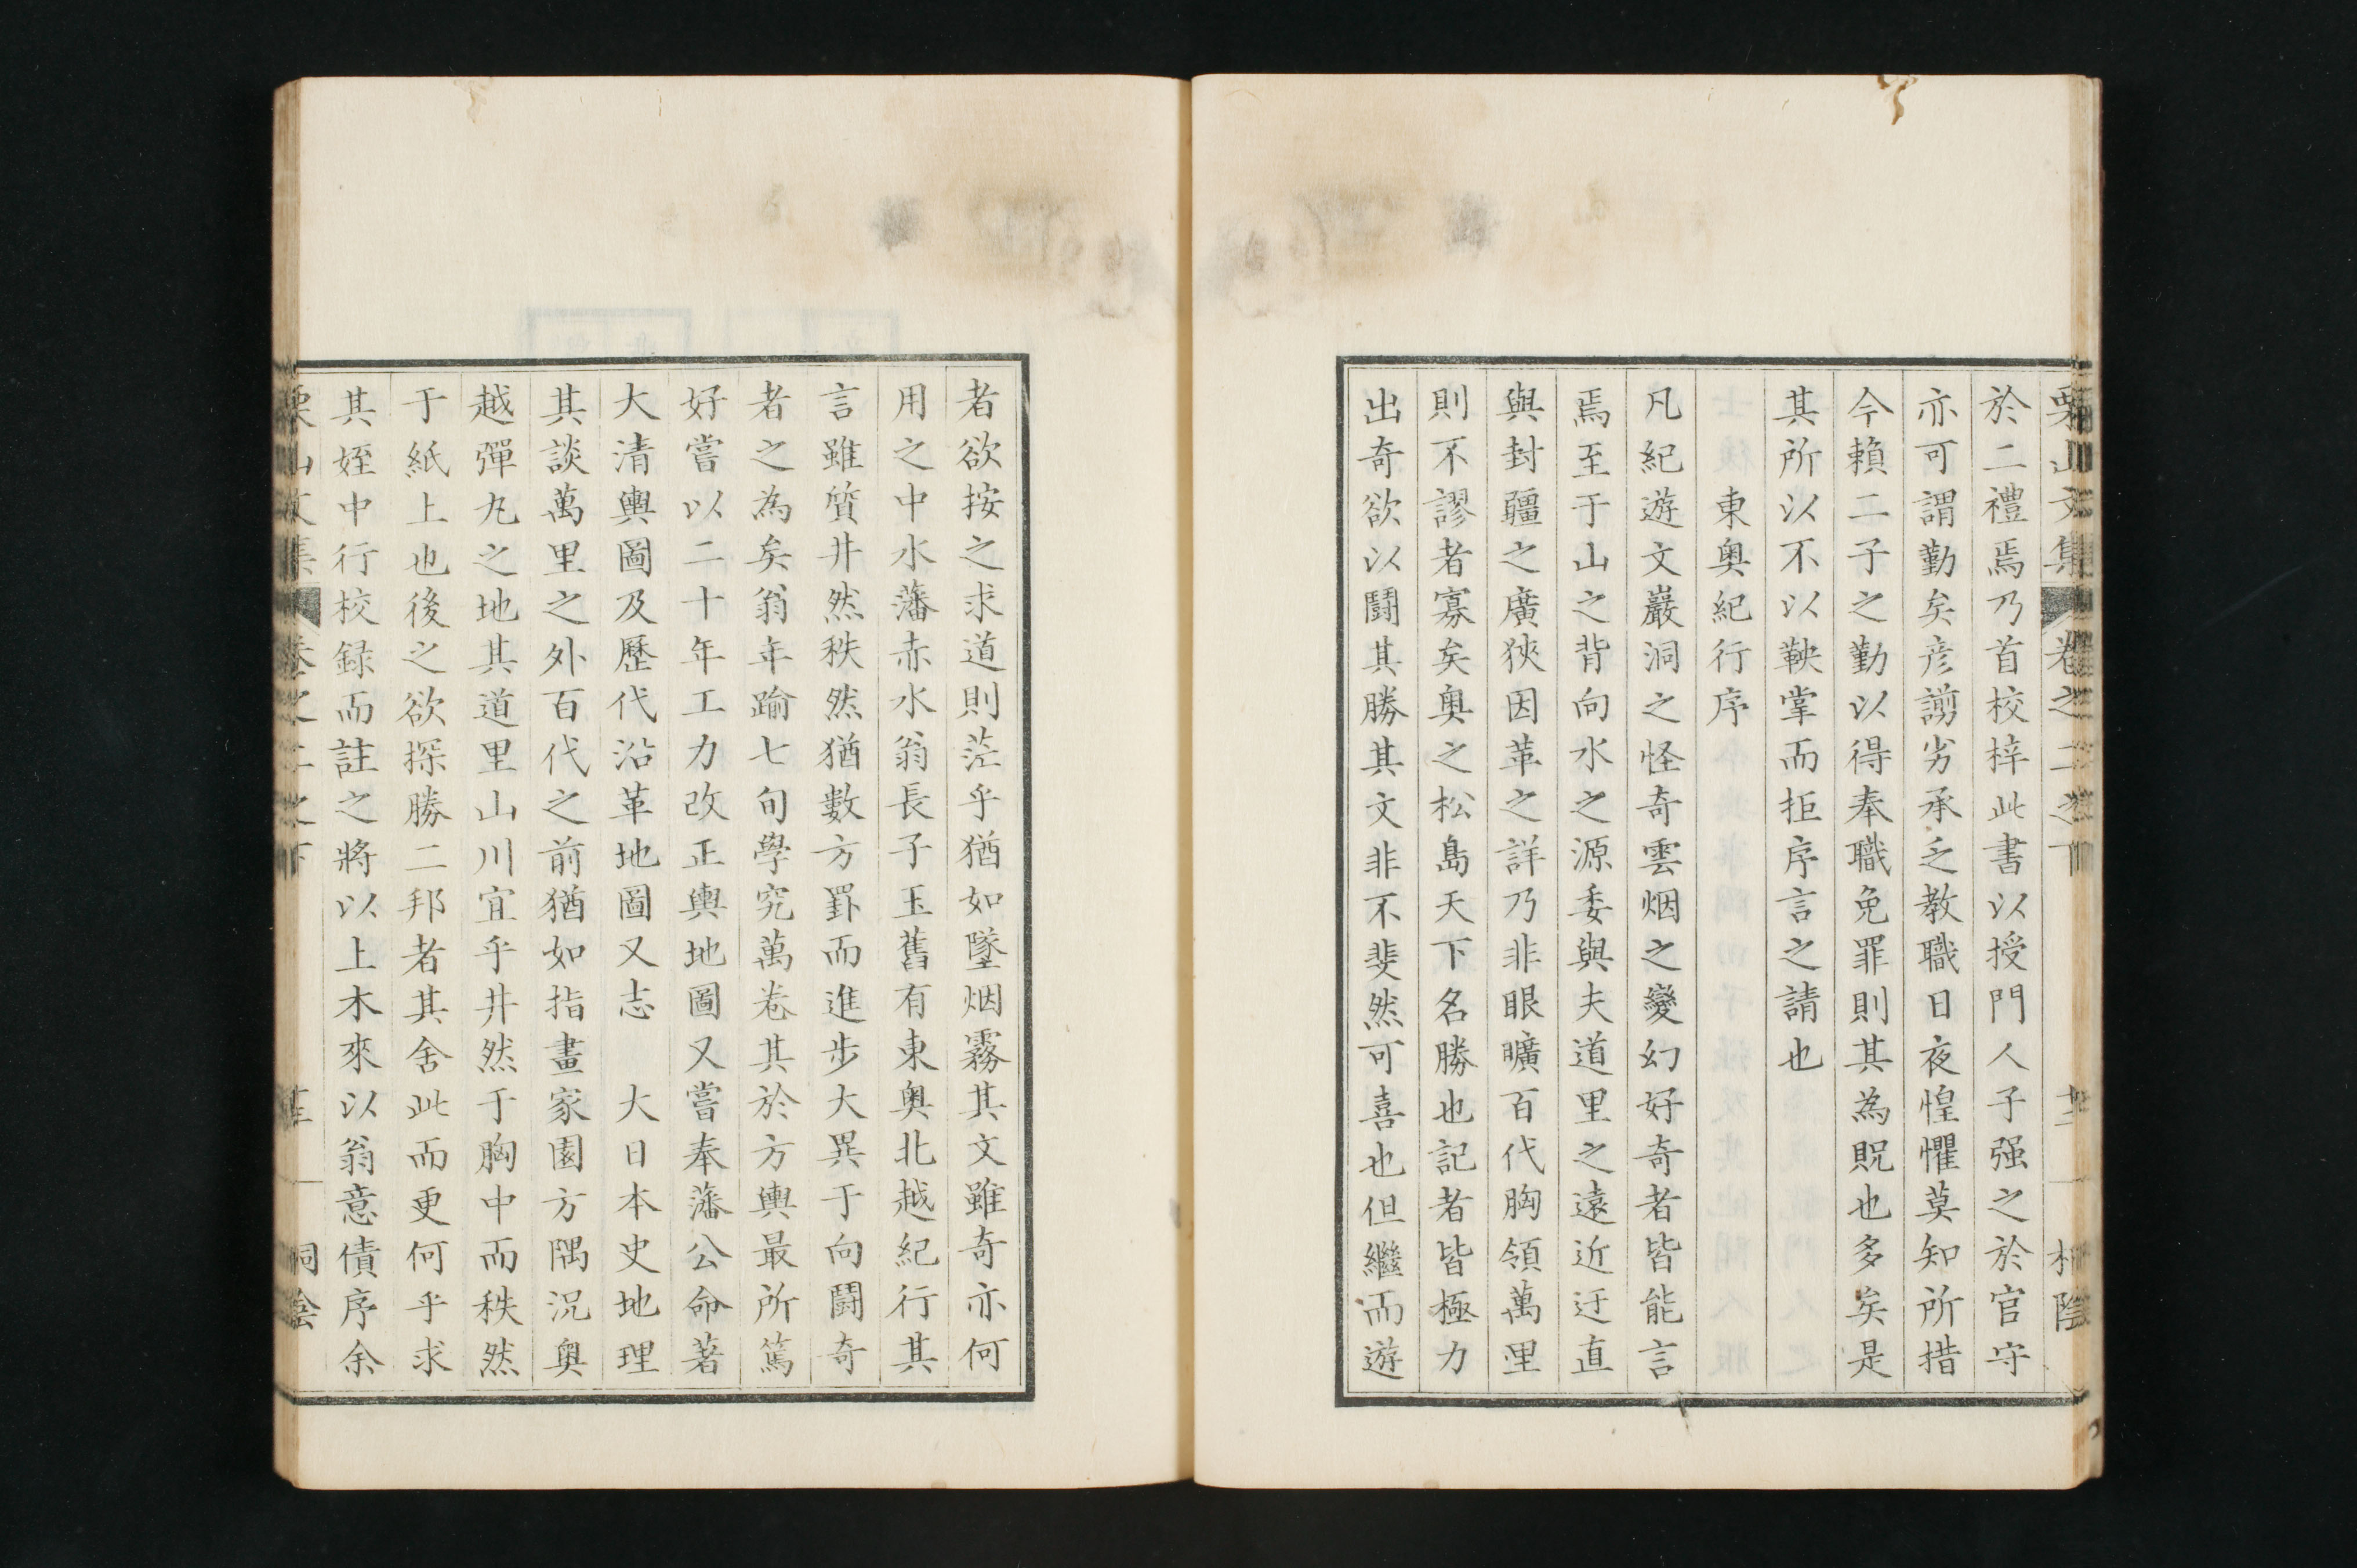 栗山文集 卷之二之下 桐陰
於二禮焉乃首校梓此書以授門人子强之於官守
亦可謂勤矣彦謭劣承乏教職日夜惶懼莫知所措
今賴二子之勤以得奉職免罪則其為貺也多矣是
其所以不以鞅掌而拒序言之請也
東奥紀行序
凡紀遊文巖洞之怪奇雲烟之變幻好奇者皆能言
焉至于山之背向水之源委與夫道里之遠近迂直
與封疆之廣狹因革之詳乃非眼曠百代胸領萬里
則不謬者寡矣奥之松島天下名勝也記者皆極力
出奇欲以鬪其勝其文非不斐然可喜也但繼而遊
者欲按之求道則茫乎猶如墜烟霧其文雖奇亦何
用之中水藩赤水翁長子玉舊有東奥北越紀行其
言雖質井然秩然猶數方罫而進步大異于向鬪奇
者之為矣翁年踰七旬學究萬卷其於方輿最所篤
好嘗以二十年工力改正輿地圖又嘗奉藩公命著
大清輿圖及歷代沿革地圖又志 大日本史地理
其談萬里之外百代之前猶如指畫家園方隅况奥
越彈丸之地其道里山川宜乎井然于胸中而秩然
于紙上也後之欲探勝二邦者其舍此而更何乎求
其姪中行校録而註之將以上木來以翁意債序余
栗山文集 卷之二之下 桐陰